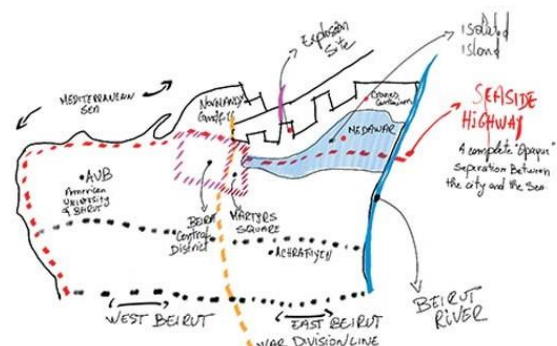 Explosion
Site
Isolated
island
MEDITERRANEAN
SEA
NORMANDY
Landfill
Cranes
Containers
SEASIDE
HIGHWAY
A complete "Opaque"
Separation Between
the city and the Sea
MEDAWAR
AUB
American
UNIVERSITY
of BEIRUT
BEIRUT
Central
District
MARTYRS
SQUARE
ACHRAFIYEH
BEIRUT
RIVER
WEST BEIRUT
EAST BEIRUT
WAR DIVISION LINE